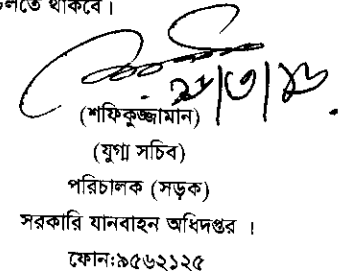 চলতে থাকবে।
২৮/৩/১৬
(শফিকুজ্জামান)
(যুগ্ম সচিব)
পরিচালক (সড়ক)
সরকারি যানবাহন অধিদপ্তর ।
ফোন:৯৫৬২১২৫